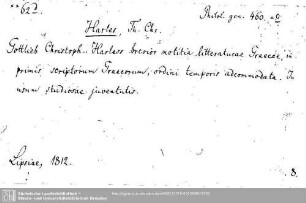 **622.
Philol. gen. 460. no
Harles, Th. Chr.
Gottlieb Christoph. Harless brevior notitia litteraturae Graecae, in
primis scriptorum Graecorum, ordini temporis adcommodata. In
usum studiosae juventutis.
Lipsiae, 1812.
8.
Sächsische Landesbibliothek -
Staats- und Universitätsbibliothek Dresden